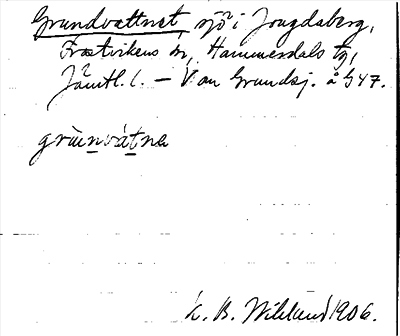 Grundvattnet, sjö i Jougdaberg,
Frostvikens sn, Hammerdals tg,
Jämtl. l. – V om Grundsj. å 547.
grùnvátnə
K. B. Wiklund 1906.